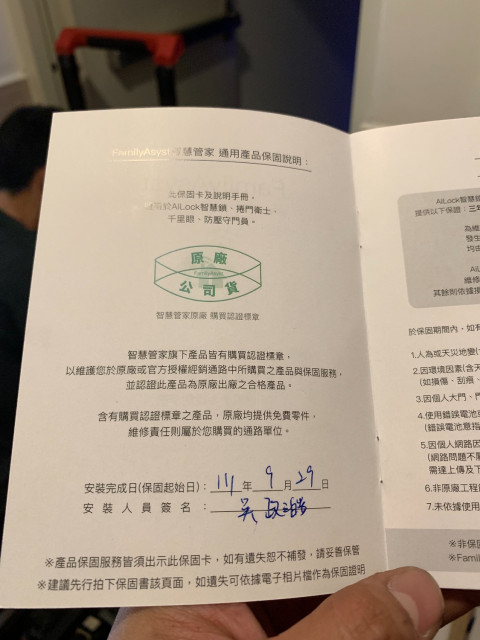 FamilyAsyst 智慧管家 通用產品保固說明：
此保固卡及說明手冊，
AiLock智慧鎖、捲門衛士、
千里眼、防壓守門員。
原廠
FamilyAsyst
公司貨
智慧管家原廠 購買認證標章
智慧管家旗下產品皆有購買認證標章，
以維護您於原廠或官方授權經銷通路中所購買之產品與保固服務，
並認證此產品為原廠出廠之合格產品。
含有購買認證標章之產品，原廠均提供免費零件，
維修責任則屬於您購買的通路單位。
安裝完成日(保固起始日)：111年 9 月 29 日
安裝人員簽名：吳
※產品保固服務皆須出示此保固卡，如有遺失恕不補發，請妥善保管
※建議先行拍下保固書該頁面，如遺失可依據電子相片檔作為保固證明
AiLock智慧鎖
提供以下保證：三年
為維
發生
均由
AiL
維修
其餘則依據損
於保固期間內，如有
1.人為或天災地變(
2.因環境因素(含天
(如損傷、刮痕、
3.因個人大門、門
4.使用錯誤電池或
(錯誤電池意指
5.因個人網路因
(網路問題不屬
需達上傳及下
6.非原廠工程
7.未依據使用
※非保固
※Famil